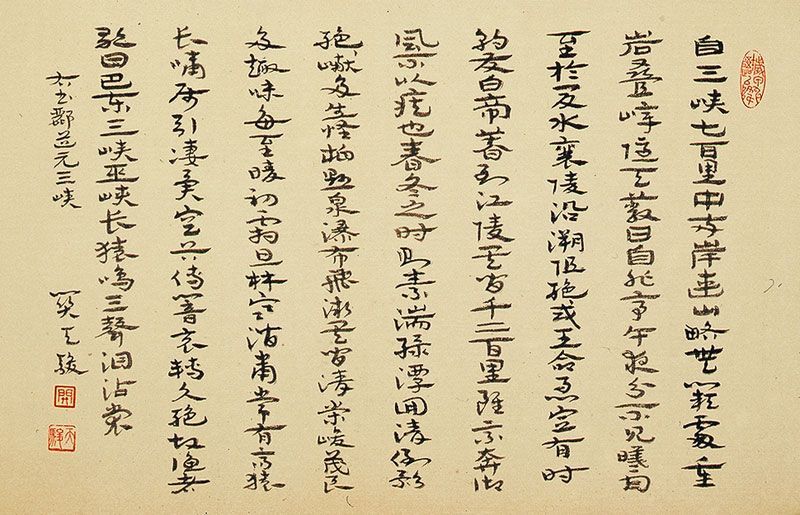 自三峡七百里中两岸連山略無闕處重
岩叠嶂隐天蔽日自非亭午夜分不见曦月
至於夏水襄陵沿溯阻絶或王命急宣有时
朝发白帝暮到江陵其间千二百里雖乘奔御
風不以疾也春冬之时则素湍緑潭回清倒影
絶巘多生怪柏悬泉瀑布飛漱其间清荣峻茂良
多趣味每至晴初霜旦林寒涧肃常有高猿
长啸属引凄異空谷傳響哀轉久絶故渔者
歌曰巴东三峡巫峡长猿鸣三聲泪沾裳
右书酈道元三峡